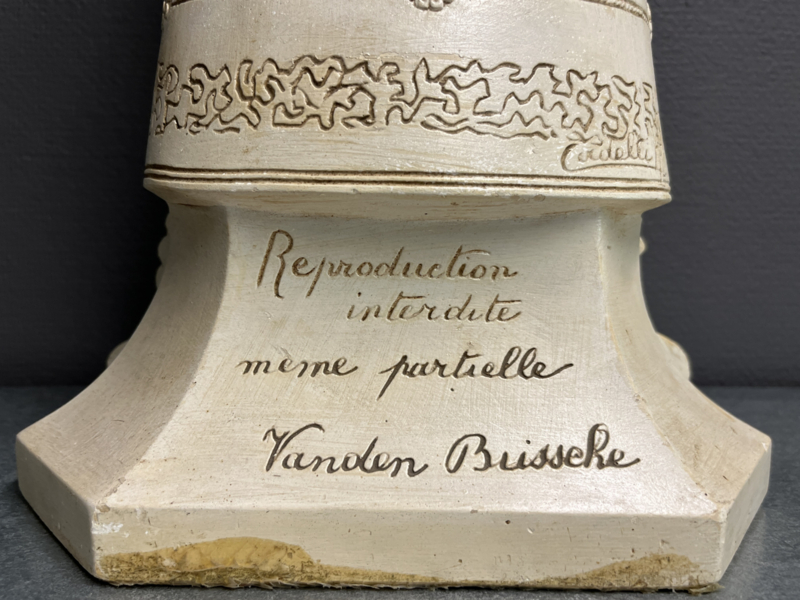 Cardelli
Reproduction
interdite
meme partielle
Vanden Bussche